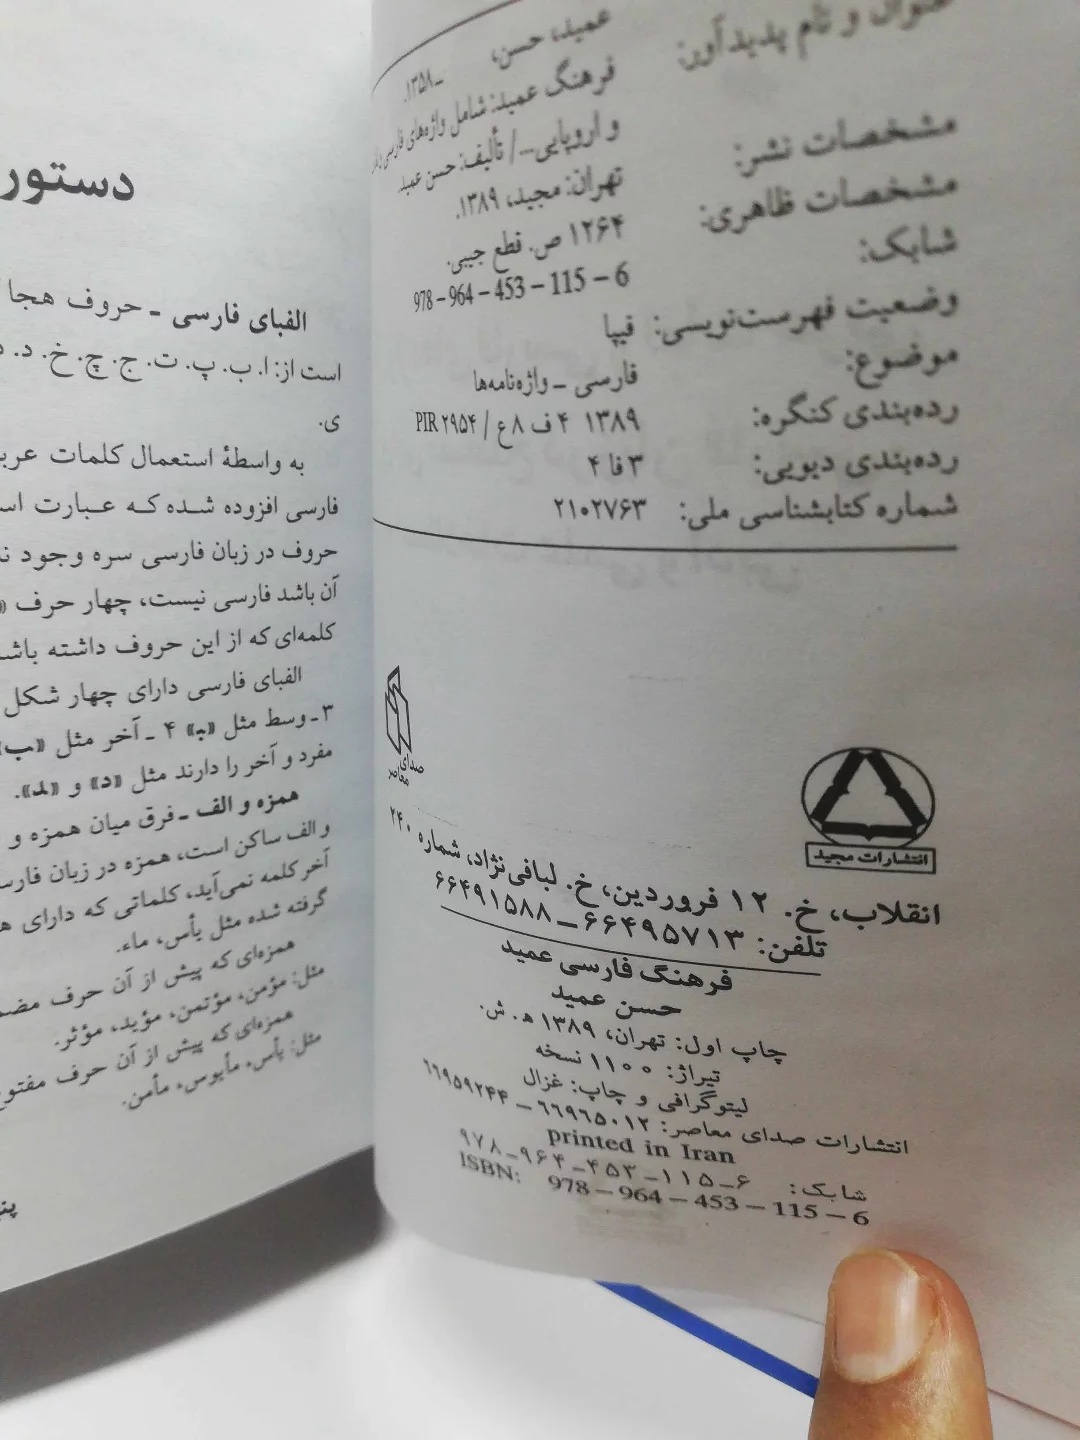 عنوان و نام پدیدآور:
عمید، حسن، ـ۱۳۵۸.
فرهنگ عمید: شامل واژه‌های فارسی
و اروپایی.../ تألیف: حسن عمید.
مشخصات نشر: تهران: مجید، ۱۳۸۹.
مشخصات ظاهری: ۱۲۶۴ ص. قطع جیبی.
شابک: 978 – 964 – 453 – 115 – 6
وضعیت فهرست‌نویسی: فیپا
موضوع: فارسی ـ واژه‌نامه‌ها
رده‌بندی کنگره: ۱۳۸۹ ۴ ف ۸ع / PIR ۲۹۵۴
رده‌بندی دیویی: ۳ فا ۴
شماره کتابشناسی ملی: ۲۱۰۲۷۶۳
صدای
معاصر
انتشارات مجید
انقلاب، خ. ۱۲ فروردین، خ. لبافی‌نژاد، شماره ۲۴۰
تلفن: ۶۶۴۹۵۷۱۳ – ۶۶۴۹۱۵۸۸
فرهنگ فارسی عمید
حسن عمید
چاپ اول: تهران، ۱۳۸۹ ه‍. ش.
تیراژ: ۱۱۰۰ نسخه
لیتوگرافی و چاپ: غزال
انتشارات صدای معاصر: ۶۶۹۶۵۰۱۲ – ۶۶۹۵۹۲۴۴
printed in Iran
شابک: ۶ – ۱۱۵ – ۴۵۳ – ۹۶۴ – ۹۷۸
ISBN: 978 – 964 – 453 – 115 – 6
دستور
الفبای فارسی ـ حروف هجا
است از: ا. ب. پ. ت. ج. چ. خ. د.
ی.
به واسطهٔ استعمال کلمات
فارسی افزوده شده که عبارت
حروف در زبان فارسی سره وجود
آن باشد فارسی نیست، چهار حرف «
کلمه‌ای که از این حروف داشته
الفبای فارسی دارای چهار شکل
۳ ـ وسط مثل «ـبـ» ۴ ـ آخر مثل «ـب»
مفرد و آخر را دارند مثل «د» و «ـد».
همزه و الف ـ فرق میان همزه و
و الف ساکن است، همزه در زبان
آخر کلمه نمی‌آید، کلماتی که دارای
گرفته شده مثل یأس، ماء.
همزه‌ای که پیش از آن حرف
مثل: مؤمن، مؤتمن، مؤید، مؤثر.
همزه‌ای که پیش از آن حرف
مثل: یأس، مأیوس، مأمن.